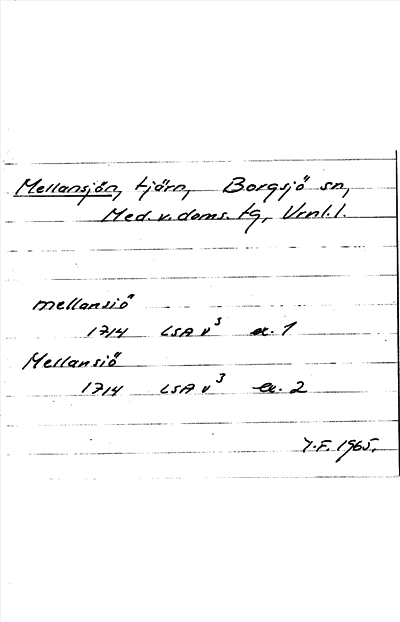 Mellansjön, tjärn, Borgsjö sn,
Med. v. doms. tg, Vrnl. l.
mellansiö
1714 LSA V³ ex. 1
Mellansiö
1714 LSA V³ ex. 2
Y.F. 1965.